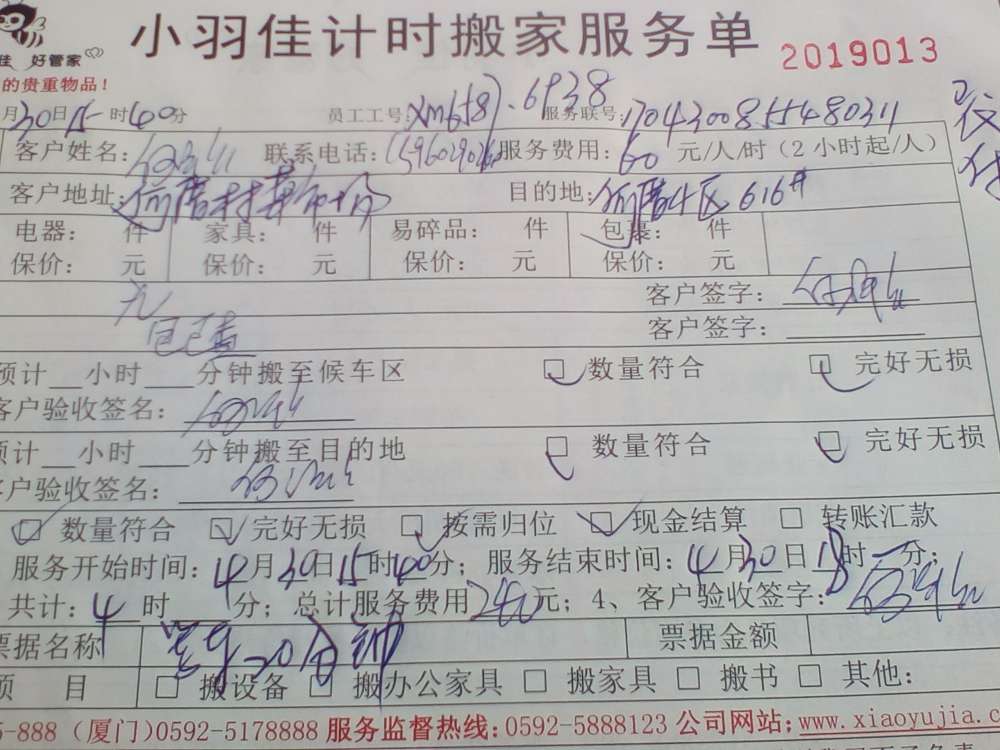 小羽佳计时搬家服务单
2019013
佳 好管家
的贵重物品!
月30日15时40分 员工工号: 服务联号:
客户姓名: 联系电话: 服务费用:60元/人/时(2小时起/人)
客户地址: 目的地: 616#
电器: 件 家具: 件 易碎品: 件 包裹: 件
保价: 元 保价: 元 保价: 元 保价: 元
无 客户签字:
客户签字:
预计__小时___分钟搬至候车区 □ 数量符合 □ 完好无损
客户验收签名:
预计__小时___分钟搬至目的地 □ 数量符合 □ 完好无损
客户验收签名:
☑ 数量符合 ☑ 完好无损 ☑ 按需归位 ☑ 现金结算 □ 转账汇款
服务开始时间:4月30日15时40分; 服务结束时间:4月30日18时 分;
共计:4时 分; 总计服务费用240元; 4、客户验收签字:
票据名称 票据金额
项 目 □ 搬设备 □ 搬办公家具 □ 搬家具 □ 搬书 □ 其他:
5-888 (厦门)0592-5178888 服务监督热线:0592-5888123 公司网站:www.xiaoyujia.c